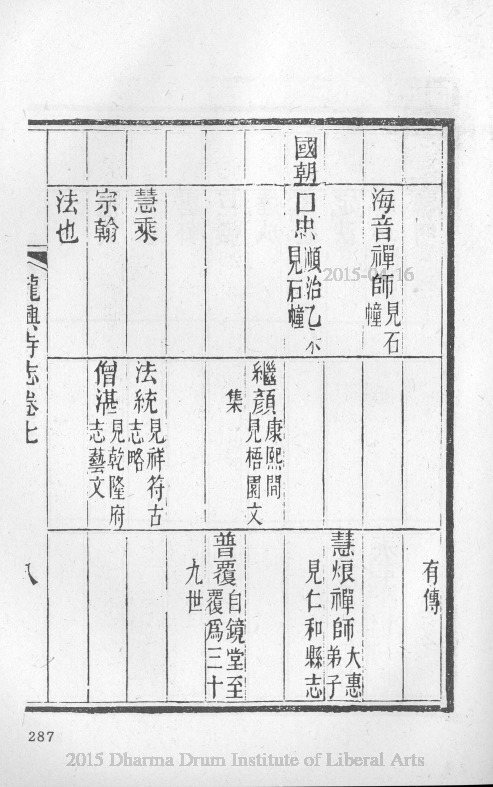 有傳
海音禪師
見石
幢
慧禪師
大惠
弟子
見仁和縣志
國朝
口忠
順治乙未
見石幢
繼顏
康熙間
見梧園文
集
普覆
自鏡堂至
覆爲三十
九世
慧乘
法統
見祥符古
志略
宗翰
僧湛
見乾隆府
志藝文
法也
龍興寺志卷七
八
287
2015-04-16
2015 Dharma Drum Institute of Liberal Arts